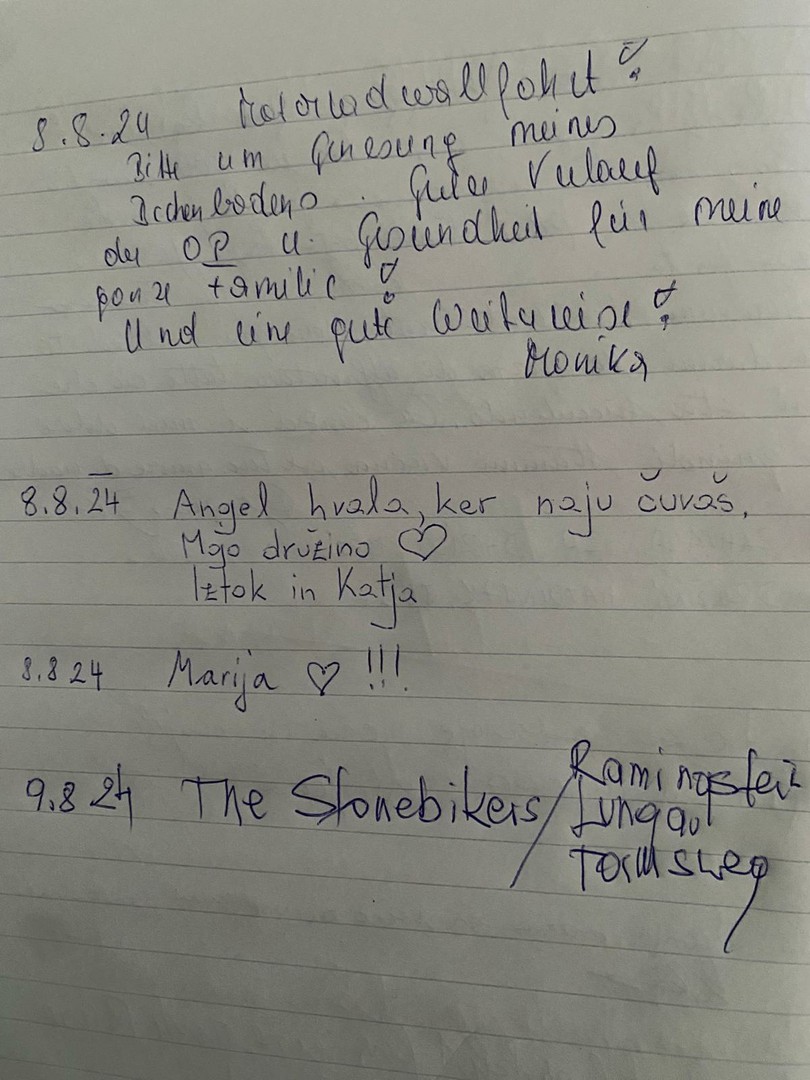 8.8.24 Motorradwallfahrt!
Bitte um Genesung meines
Beckenbodens. Guter Verlauf
der OP u. Gesundheit für meine
ganze Familie!
Und eine gute Weiterreise!
Monika
8.8.24 Angel hvala, ker naju čuvaš,
Mojo družino ♡
Iztok in Katja
8.8 24 Marija ♡ !!!
9.8 24 The Stonebikers/Ramingstein
Lungau
Tamsweg